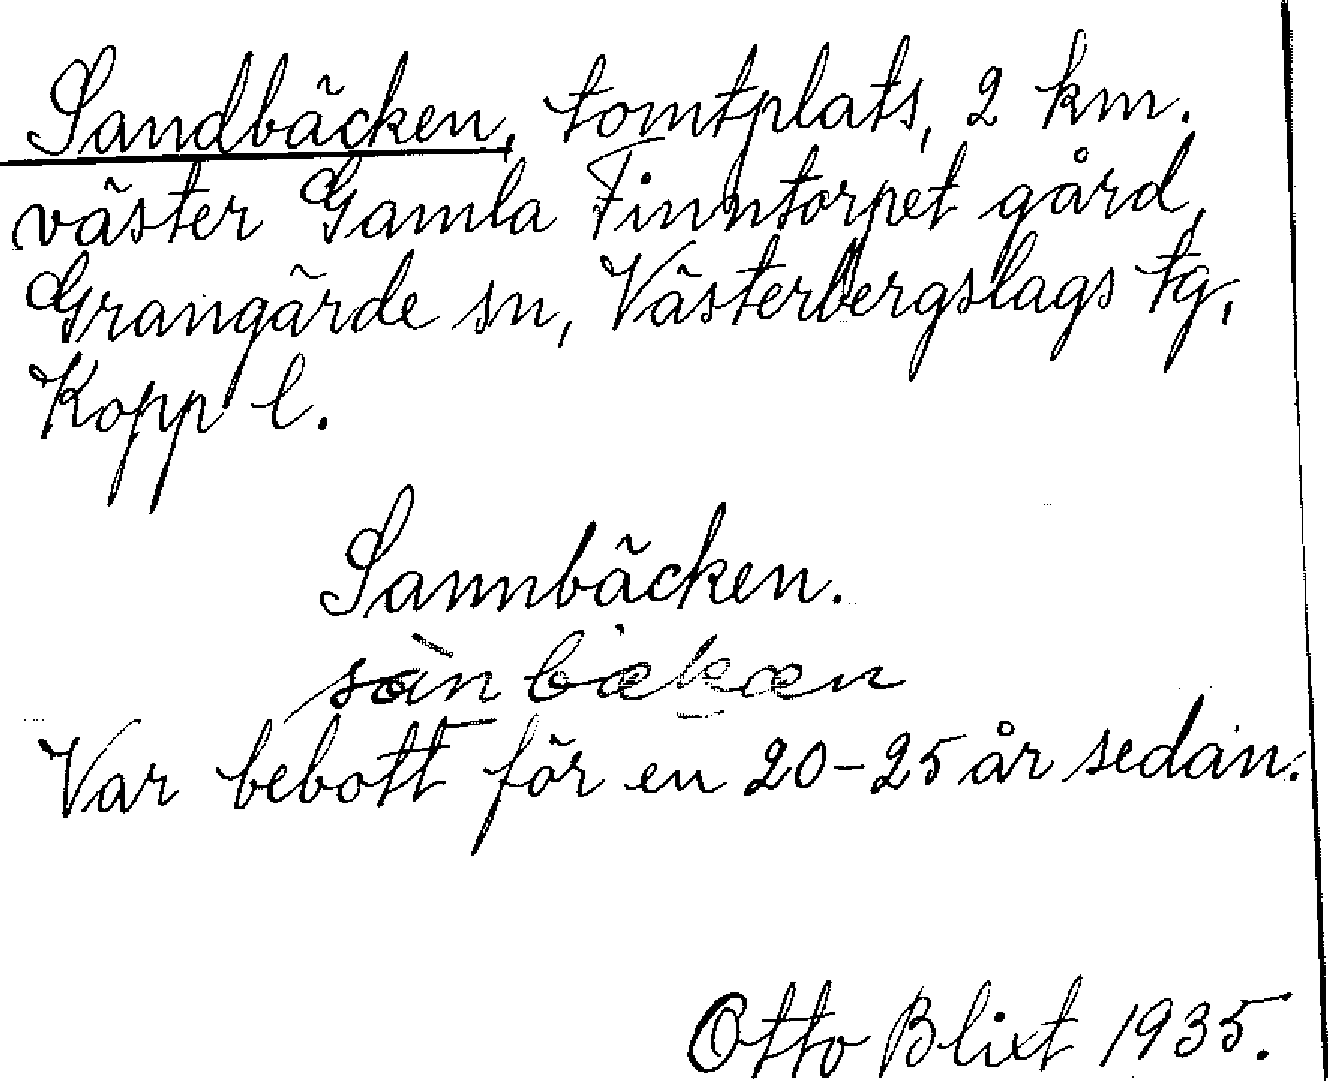 Sandbäcken, tomtplats, 2 km.
väster Gamla Finntorpet gård,
Grangärde sn, Västerbergslags tg,
Kopp l.
Sannbäcken.
sànbækæn
Var bebott för en 20-25 år sedan.
Otto Blixt 1935.